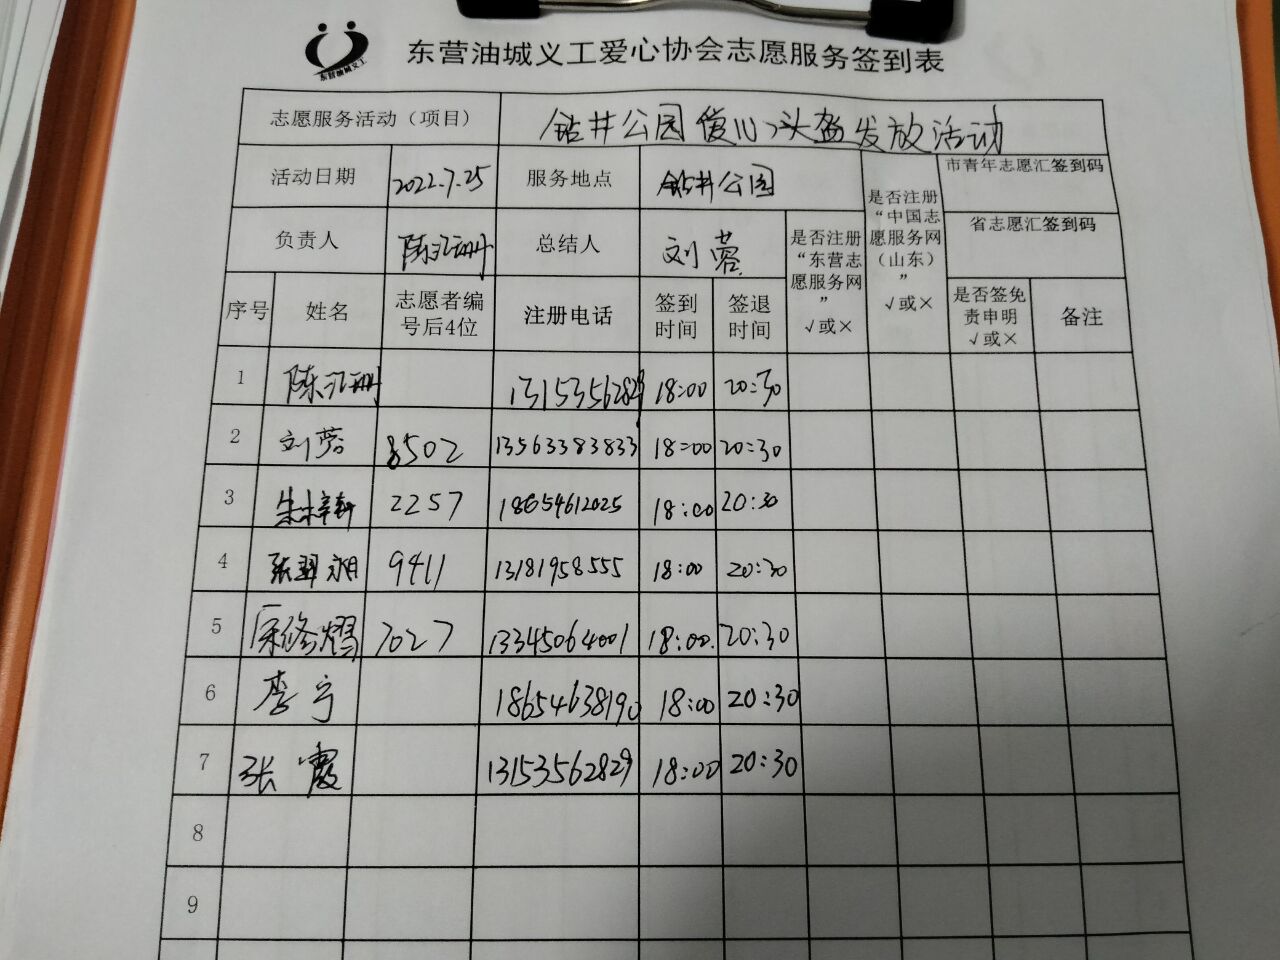 东营油城义工
东营油城义工爱心协会志愿服务签到表
志愿服务活动（项目） 钻井公园爱心头盔发放活动
活动日期 2022.7.25 服务地点 钻井公园
是否注册“东营志愿服务网” √或×
是否注册“中国志愿服务网（山东）” √或×
市青年志愿汇签到码
省志愿汇签到码
负责人 陈汇珊 总结人 刘蓉
序号 姓名 志愿者编号后4位 注册电话 签到时间 签退时间 是否签免责申明 √或× 备注
1 陈汇珊 13153562829 18:00 20:30
2 刘蓉 8502 13563383833 18:00 20:30
3 朱梓轩 2257 18654612025 18:00 20:30
4 张翠娟 9411 13181958555 18:00 20:30
5 修熠 7027 13345064001 18:00 20:30
6 李宁 18654638190 18:00 20:30
7 张霞 13153562829 18:00 20:30
8
9